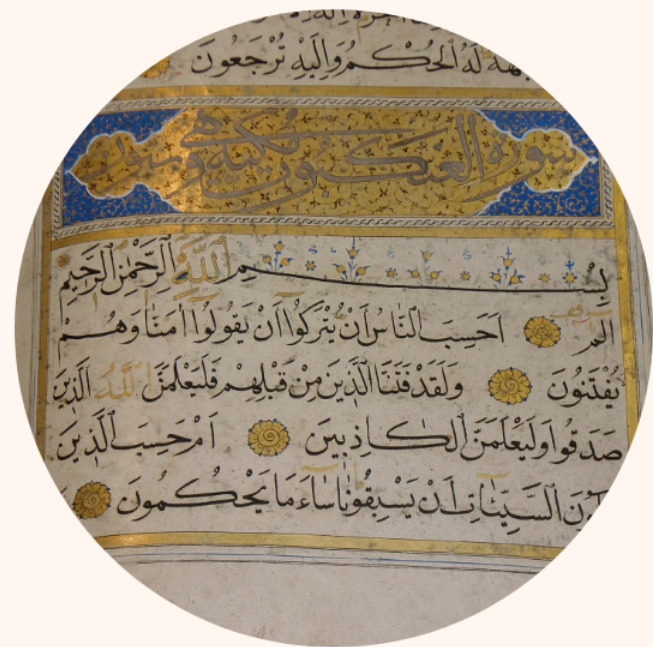 لَهُ الْحُكْمُ وَاِلَيْهِ تُرْجَعُونَ
سورة العنكبوت مكية وهي
بِسْمِ اللّٰهِ الرَّحْمٰنِ الرَّحِيمِ
الم اَحَسِبَ النَّاسُ اَنْ يُتْرَكُوٓا اَنْ يَقُولُوٓا اٰمَنَّا وَهُمْ
يُفْتَنُونَ وَلَقَدْ فَتَنَّا الَّذِينَ مِنْ قَبْلِهِمْ فَلَيَعْلَمَنَّ اللّٰهُ الَّذِينَ
صَدَقُوا وَلَيَعْلَمَنَّ الْكَاذِبِينَ اَمْ حَسِبَ الَّذِينَ
السَّيِّـَٔاتِ اَنْ يَسْبِقُونَا سَٓاءَ مَا يَحْكُمُونَ